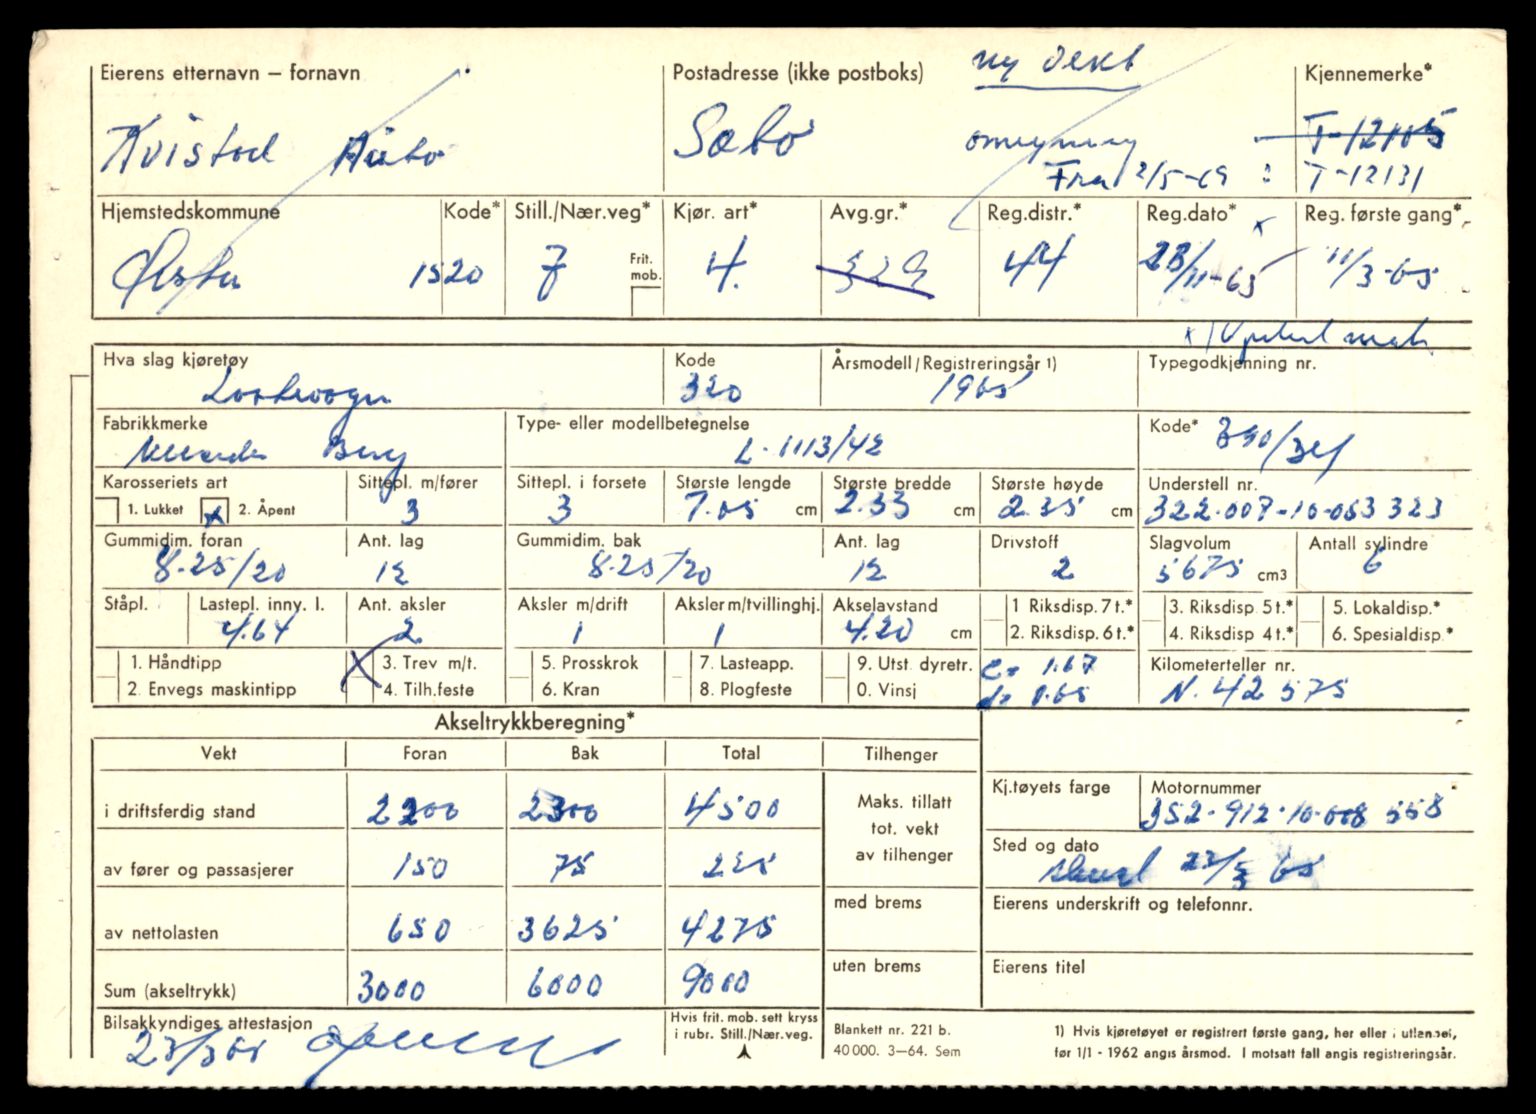 ny vekt
Eierens etternavn – fornavn Postadresse (ikke postboks) Kjennemerke*
Kvistad Sæbø T-12105
Fra 2/5-69 : T-12131
Hjemstedskommune Kode* Still./Nær.veg* Kjør. art* Avg.gr.* Reg.distr.* Reg.dato* Reg. første gang*
Ørsta 1520 7 Frit. mob. 4. 329 44 23/11-65 11/3-65
Hva slag kjøretøy Kode Årsmodell/Registreringsår 1) Typegodkjenning nr.
Lastevogn 320 1965
Fabrikkmerke Type- eller modellbetegnelse Kode*
Mercedes Benz L-1113/42
Karosseriets art Sittepl. m/fører Sittepl. i forsete Største lengde Største bredde Største høyde Understell nr.
1. Lukket x 2. Åpent 3 3 7.05 cm 2.33 cm 2.35 cm 322.007-10-053 323
Gummidim. foran Ant. lag Gummidim. bak Ant. lag Drivstoff Slagvolum Antall sylindre
8.25/20 12 8.25/20 12 2 5675 cm3 6
Ståpl. Lastepl. inny. l. Ant. aksler Aksler m/drift Aksler m/tvillinghj. Akselavstand 1 Riksdisp. 7 t.* 3. Riksdisp. 5 t.* 5. Lokaldisp.*
4.64 2 1 1 4.20 cm 2. Riksdisp. 6 t.* 4. Riksdisp 4 t.* 6. Spesialdisp.*
1. Håndtipp X 3. Trev m/t. 5. Prosskrok 7. Lasteapp. 9. Utst. dyretr. c= 1.67 Kilometerteller nr.
2. Envegs maskintipp 4. Tilh.feste 6. Kran 8. Plogfeste 0. Vinsj d= 0.65 N. 42 575
Akseltrykkberegning*
Vekt Foran Bak Total Tilhenger
i driftsferdig stand 2200 2300 4500 Maks. tillatt tot. vekt av tilhenger Kj.tøyets farge Motornummer
352.912.10.008 558
av fører og passasjerer 150 75 225 Sted og dato
av nettolasten 650 3625 4275 med brems Eierens underskrift og telefonnr.
Sum (akseltrykk) 3000 6000 9000 uten brems Eierens titel
Bilsakkyndiges attestasjon Hvis frit. mob. sett kryss i rubr. Still./Nær.veg. Blankett nr. 221 b. 1) Hvis kjøretøyet er registrert første gang, her eller i utlandet,
40 000. 3–64. Sem før 1/1 - 1962 angis årsmod. I motsatt fall angis registreringsår.